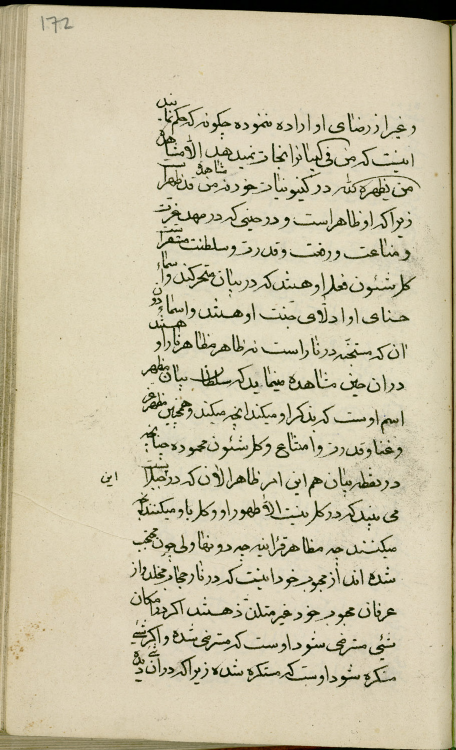 172
و غیر از رضای او اراده ننموده چگونه که حکم نماید
اینست که من فی البیان را نجات نمیدهد الا مشاهده
من یظهره الله در کینونیات خود نه من قد ظهر
زیرا که او ظاهر است و در حینی که در مهد عزت
و مناعت و رفعت و قدرت و سلطنت مستقر است
کل شئون فعل او هستند که در بیان متحرکند و اسماء
حسنای او ادلای جنت او هستند و اسماء دون
ان که مستجنه در نار است نه ظاهر مظاهر نار او هستند
در ان حین مشاهده مینماید که سلطان بیان مظهر
اسم اوست که بذکر او میکند انچه میکند و همچنین مظهر عز
و غنا و قدرت و امتناع و کل شئون محموده چنانچه
در نقطه بیان هم این امر ظاهر الان که در جبل است
می بیند که در کل نیست الا ظهور او و کل باو میکنند انچه
این
میکنند چه مظاهر قرانیه چه دونها ولی چون محتجب
شده اند از محبوب خود اینست که در نار حجاب مخلد و از
عرفان محبوب خود غیر متلذذ هستند اگر در امکان
شیئی مترضی شود اوست که مترضی شده و اگر شیئی
متکره شود اوست که متکره شده زیرا که در ان دیده